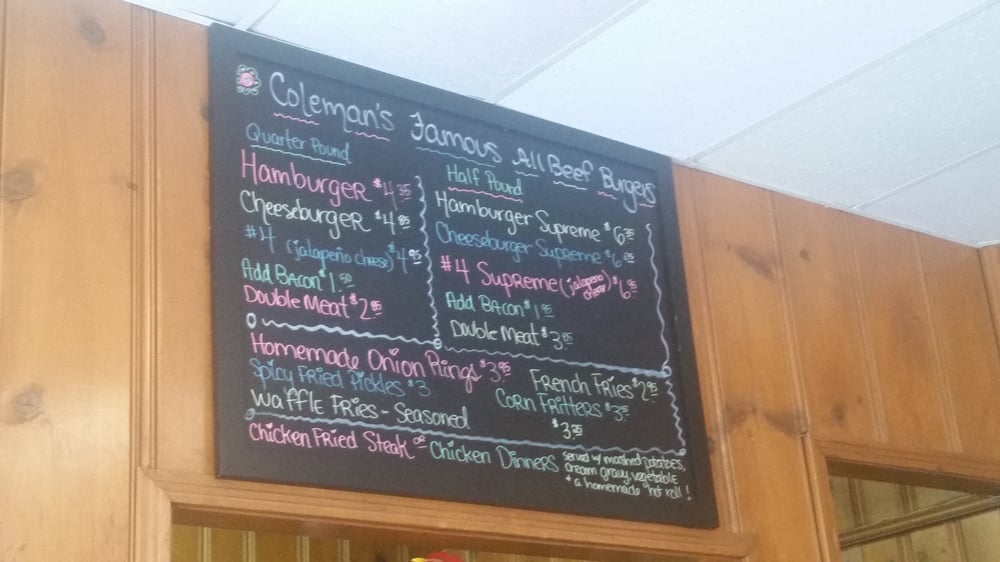 Coleman's Famous All Beef Burgers
Quarter Pound
Hamburger $4.35
Cheeseburger $4.85
#4 (jalapeño cheese) $4.95
Add Bacon $1.50
Double Meat $2.95
Half Pound
Hamburger Supreme $6.35
Cheeseburger Supreme $6.85
#4 Supreme (jalapeño cheese) $6.95
Add Bacon $1.95
Double Meat $3.85
Homemade Onion Rings $3.95
Spicy Fried Pickles $3
Waffle Fries - Seasoned
French Fries $2.95
Corn Fritters $3.95
$3.95
Chicken Fried Steak or Chicken Dinners
served w/ mashed potatoes,
cream gravy, vegetable
+ a homemade hot roll!